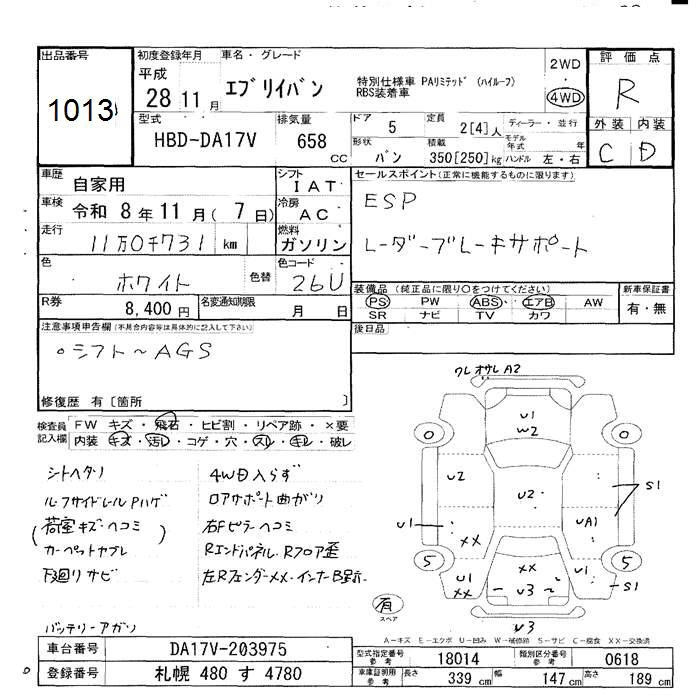 出品番号 初度登録年月 車名・グレード 2WD 評価点
1013
平成 28 11月 エブリイバン 特別仕様車 PAリミテッド (ハイルーフ)
RBS装着車 4WD R
型式 HBD-DA17V 排気量 658 CC
ドア 5 定員 2[4]人 ディーラー・並行 外装 内装
形状 バン 積載 350[250]kg モデル年式 年 ハンドル 左・右 C D
車歴 自家用 シフト IAT セールスポイント(正常に機能するものに限ります)
車検 令和 8年11月( 7日) 冷房 AC ESP
走行 11万0千731 km 燃料 ガソリン レーダーブレーキサポート
色 ホワイト 色替 色コード 26U
装備品 (純正品に限り〇をつけてください) 新車保証書
R券 8,400円 名変通知期限 月 日 PS PW ABS エアB AW 有・無
SR ナビ TV カワ
注意事項申告欄(不具合内容等は具体的に記入して下さい) 後日品
。シフト〜AGS
修復歴 有〔箇所 〕
ワレ オサレ A2
検査員記入欄 FW キズ・飛石・ヒビ割・リペア跡・×要
内装 キズ・汚し・コゲ・穴・スレ・キレ・破レ
U1
W2
シトヘタリ 4WD入らず
ルーフサイドレールPハゲ ロアサポート曲がり
(荷室キズ・ヘコミ) 右Fピラーヘコミ
カーペットカブレ Rエンドパネル、Rフロア歪
下廻りサビ 左Rフェンダーxx・インナーB
バッテリーアガリ
0 0
U2 U2 S1
U1 UA1
xx
5 5
U1 xx U1 S1
xx U3
有
スペア
U3
A-キズ E-エクボ U-凹み W-補修跡 S-サビ C-腐食 XX-交換済
車台番号 DA17V-203975 型式指定番号 参考 18014 類別区分番号 参考 0618
登録番号 札幌 480 す 4780 車庫証明用 参考 長さ 339 cm 幅 147 cm 高さ 189 cm